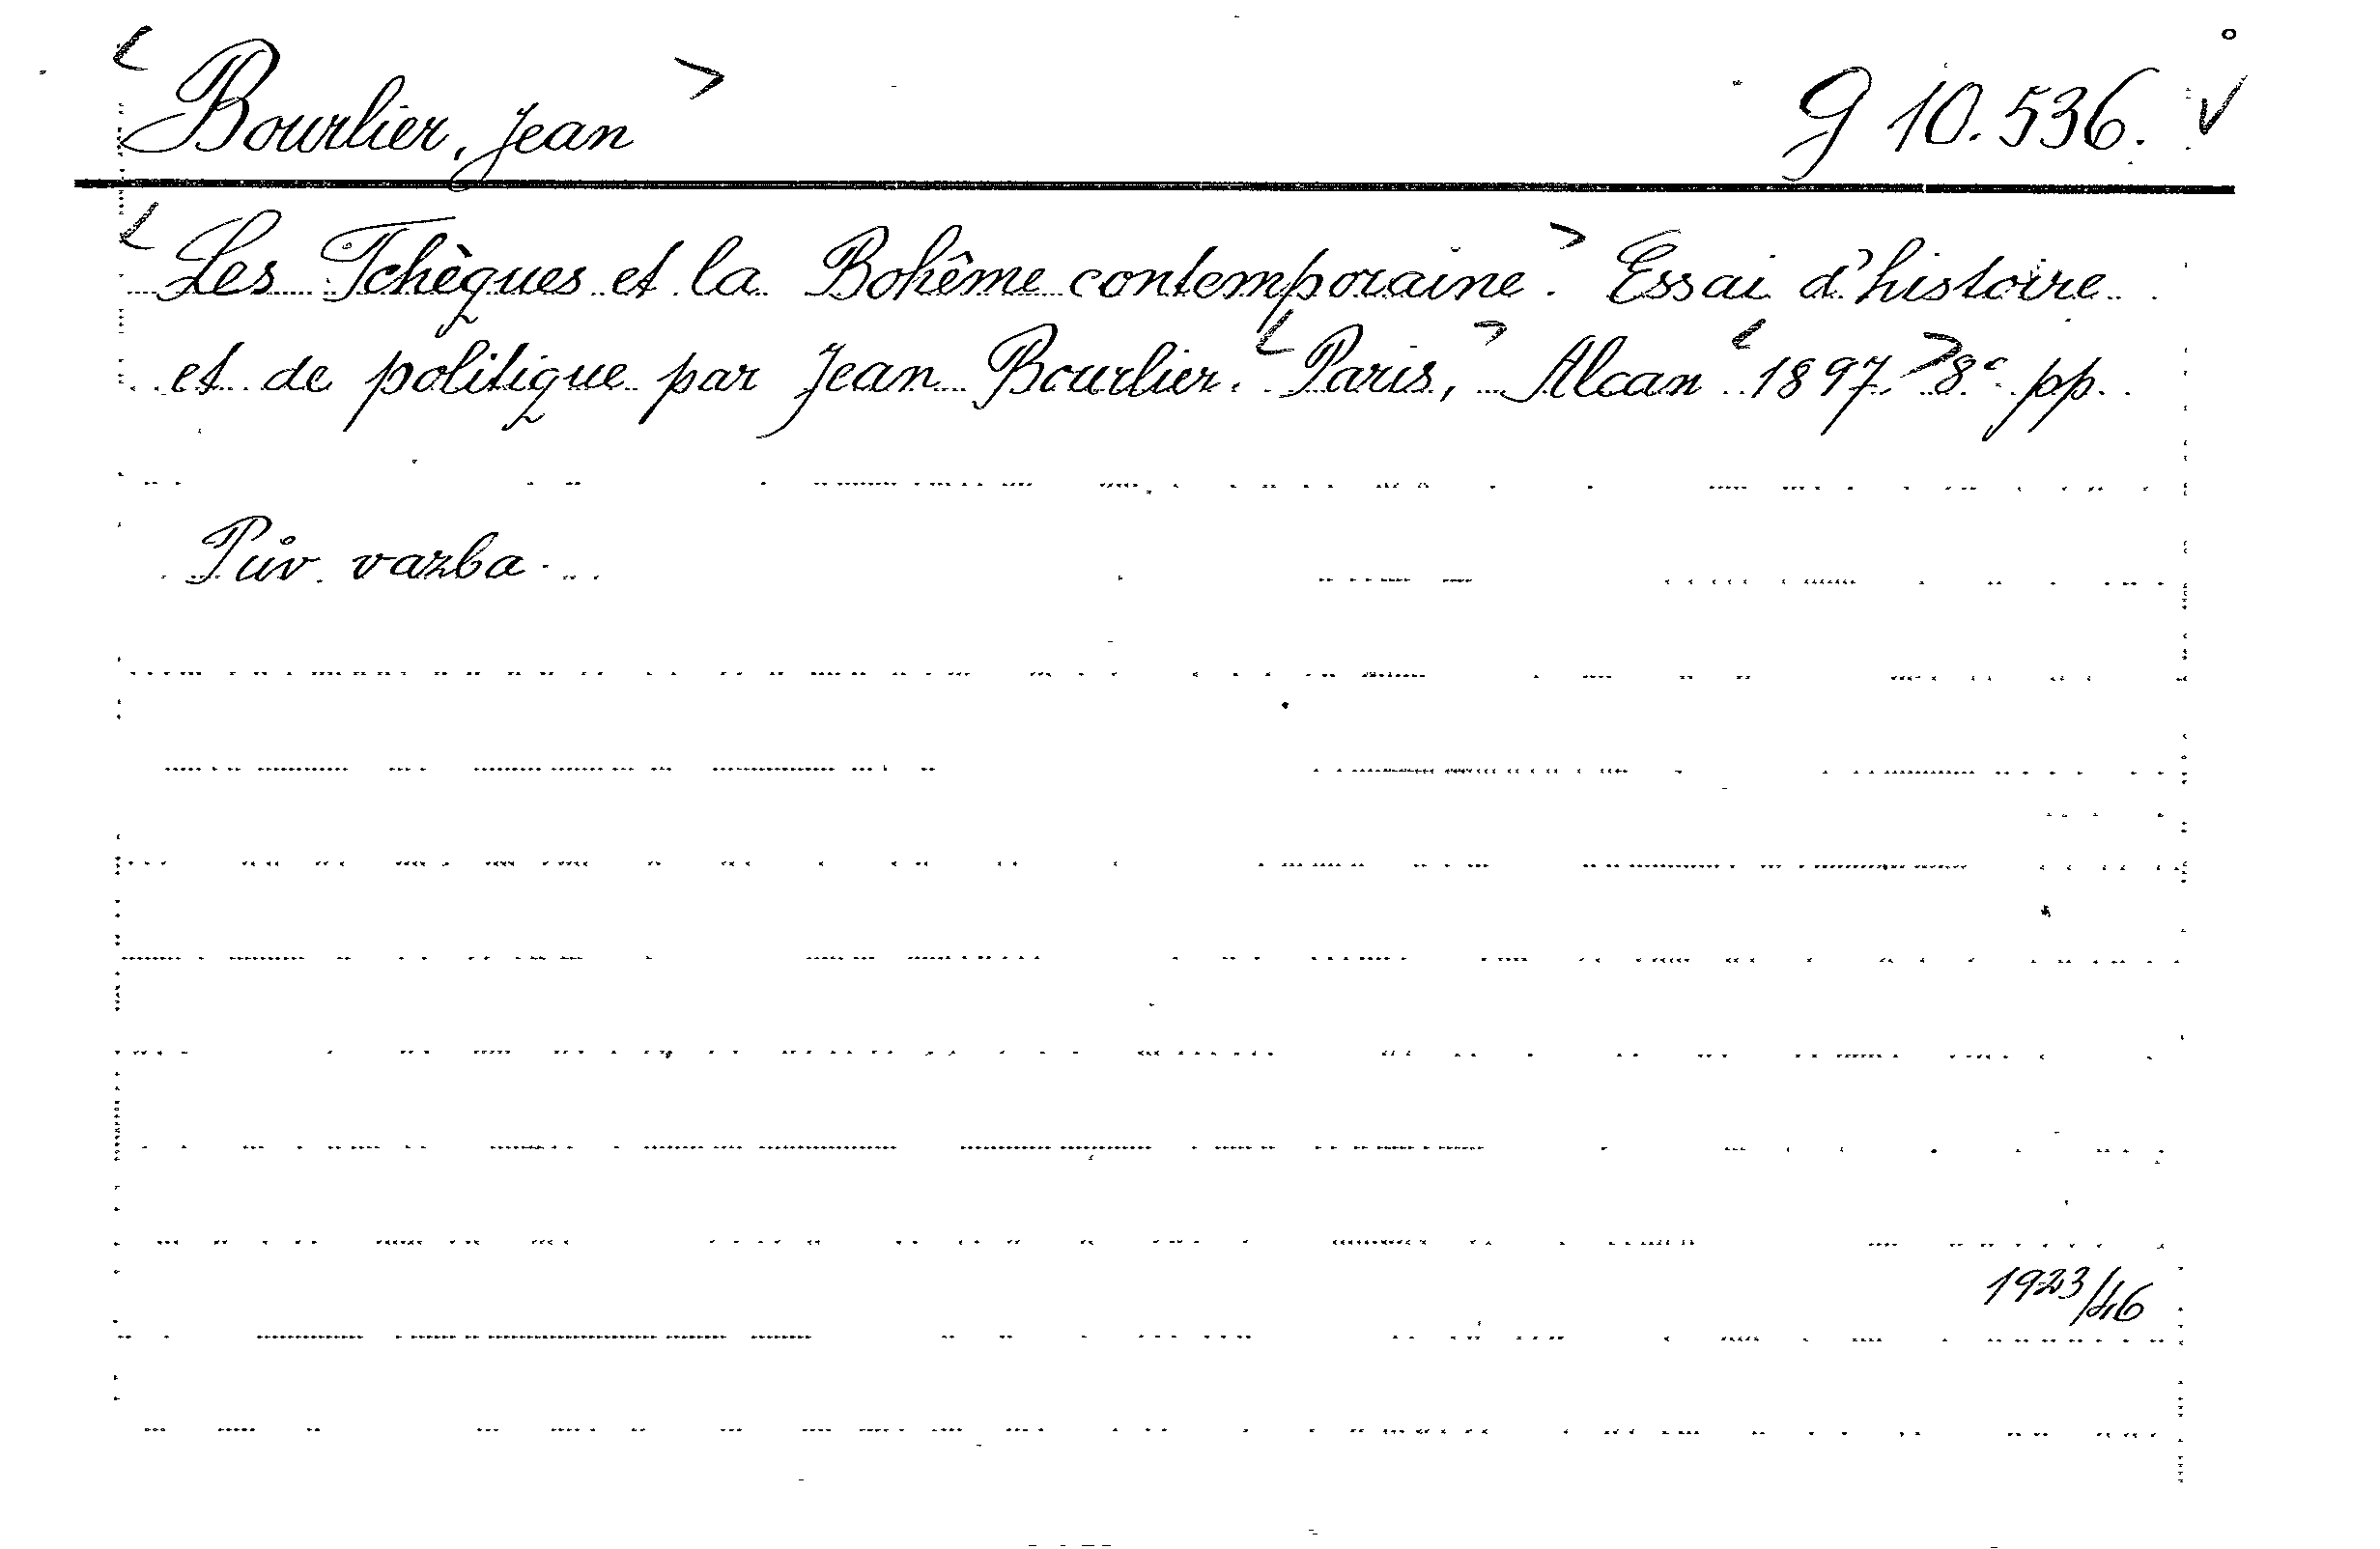 Bourlier, Jean G 10.536.
Les Tchèques et la Bohême contemporaine. Essai d'histoire
et de politique par Jean Bourlier. Paris, Alcan 1897. 8° pp.
Pův. vazba.
1923/46